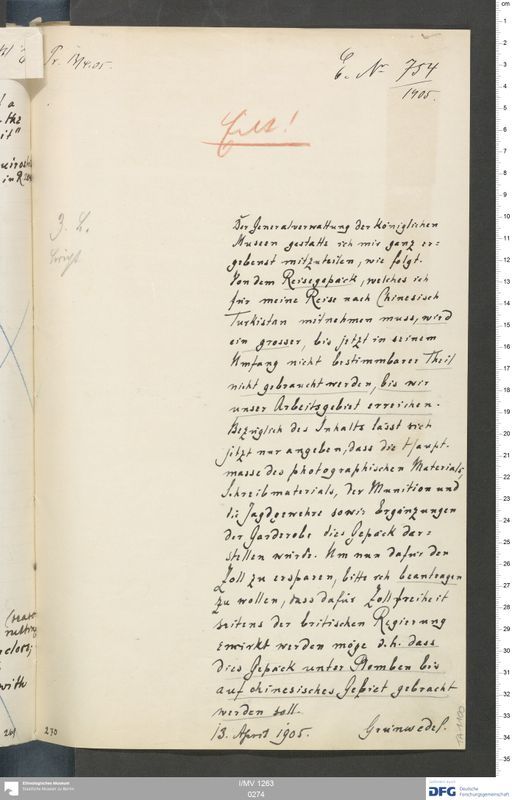 Pr. 13/4.05.
E. Nr 754
1905.
Eilt!
Der Generalverwaltung der Königlichen
Museen gestatte ich mir ganz er=
gebenst mitzuteilen, wie folgt.
Von dem Reisegepäck, welches ich
für meine Reise nach Chinesisch
Turkistan mitnehmen muss, wird
ein grosser, bis jetzt in seinem
Umfang nicht bestimmbarer Theil
nicht gebraucht werden, bis wir
unser Arbeitsgebiet erreichen.
Bezüglich des Inhalts lässt sich
jetzt nur angeben, dass die Haupt-
masse des photographischen Materials,
Schreibmaterials, der Munition und
die Jagdgewehre sowie Ergänzungen
der Garderobe dies Gepäck dar=
stellen würde. Um nun dafür den
Zoll zu ersparen, bitte ich beantragen
zu wollen, dass dafür Zollfreiheit
seitens der britischen Regierung
erwirkt werden möge d.h. dass
dies Gepäck unter Plomben bis
auf chinesisches Gebiet gebracht
werden soll.
13. April 1905. Grünwedel.
269 270
with
Ethnologisches Museum
Staatliche Museen zu Berlin
I/MV 1263
0274
DFG Deutsche
Forschungsgemeinschaft